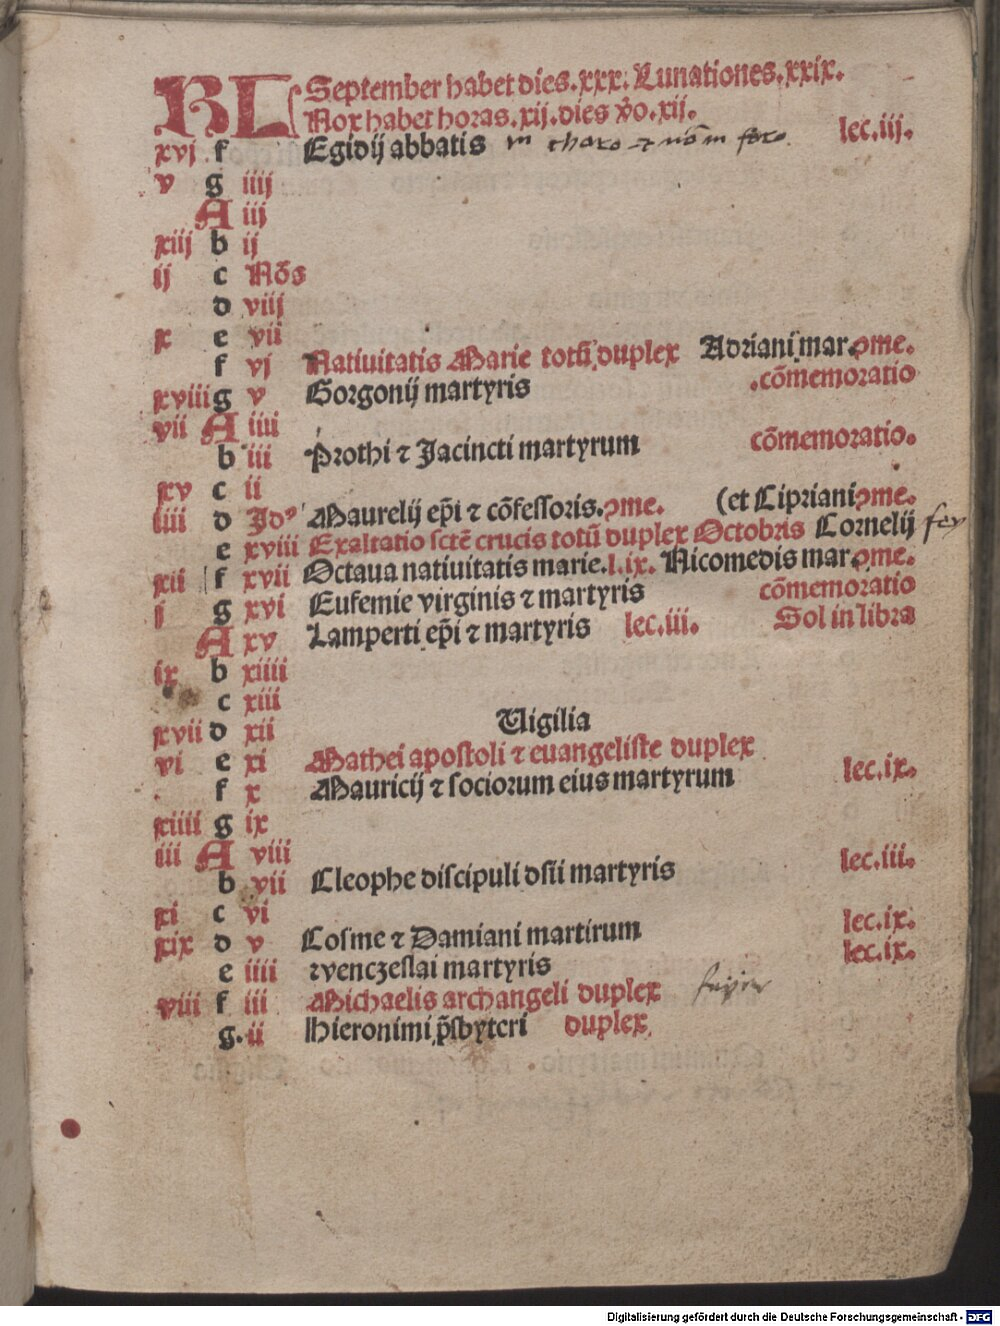 KL September habet dies.xxx. Lunationes.xxix.
Nox habet horas.xij.dies v̾o.xij.
xvj f Egidij abbatis lec.iij.
v g iiij
A iij
xiij b ij
ij c Nōs
d viij
x e vij
f vj Natiuitatis Marie totū duplex Adriani mar.ꝯme.
xviii g v Gorgonij martyris .cōmemoratio
vii A iiii
b iii Prothi ⁊ Jacincti martyrum cōmemoratio.
xv c ii
iiii d Idꝰ Maurelij ep̄i ⁊ cōfessoris.ꝯme. (et Cipriani ꝯme.
e xviii Exaltatio sctē crucis totū duplex Octobris Cornelij
xii f xvii Octaua natiuitatis marie.l.ix. Nicomedis mar.ꝯme.
j g xvi Eufemie virginis ⁊ martyris cōmemoratio
A xv Lamperti ep̄i ⁊ martyris lec.iii. Sol in libra
ix b xiiii
c xiii
xvii d xii Uigilia
vi e xi Mathei apostoli ⁊ euangeliste duplex
f x Mauricij ⁊ sociorum eius martyrum lec.ix.
xiiii g ix
iii A viii
b vii Cleophe discipuli dn̄i martyris lec.iii.
xi c vi
xix d v Cosme ⁊ Damiani martirum lec.ix.
e iiii wenczeslai martyris lec.ix.
viii f iii Michaelis archangeli duplex
g. ii Hieronimi p̄sbyteri duplex
Digitalisierung gefördert durch die Deutsche Forschungsgemeinschaft - DFG